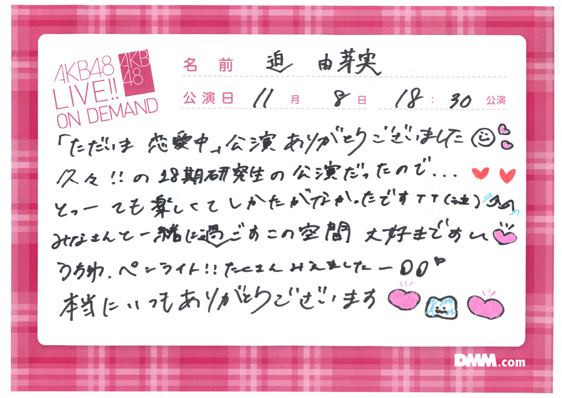 AKB48
LIVE!!
ON DEMAND
AKB
48
名前 迫 由芽実
公演日 11月 8日 18:30 公演
「ただいま 恋愛中」公演ありがとうございました
久々!!の18期研究生の公演だったので...
とっーても楽しくてしかたがなかったですTT(泣)
みなさんと一緒に過ごすこの空間 大好きですっ
うちわ、ペンライト!!たくさんみえましたー
本当にいつもありがとうございます
DMM.com